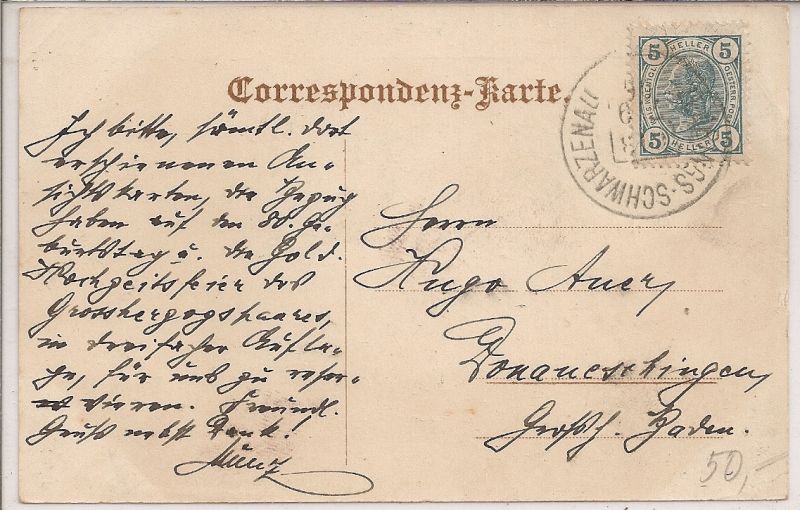 Correspondenz-Karte.
5 HELLER 5
KAIS. KOENIGL. OESTERR. POST
5 HELLER 5
NGS-SCHWARZENAU
Ich bitte, sämtl. dort
erschienenen An-
sichtskarten, die Bezug
haben auf den 80. Ge-
burtstag u. die Gold.
Hochzeitsfeier des
Grossherzogspaares,
in dreifacher Aufla-
ge, für uns zu reser-
vieren. Freundl.
Gruß nebst Dank!
Münz
Herrn
Hugo Auer,
Donaueschingen,
Großh. Baden.
50,-